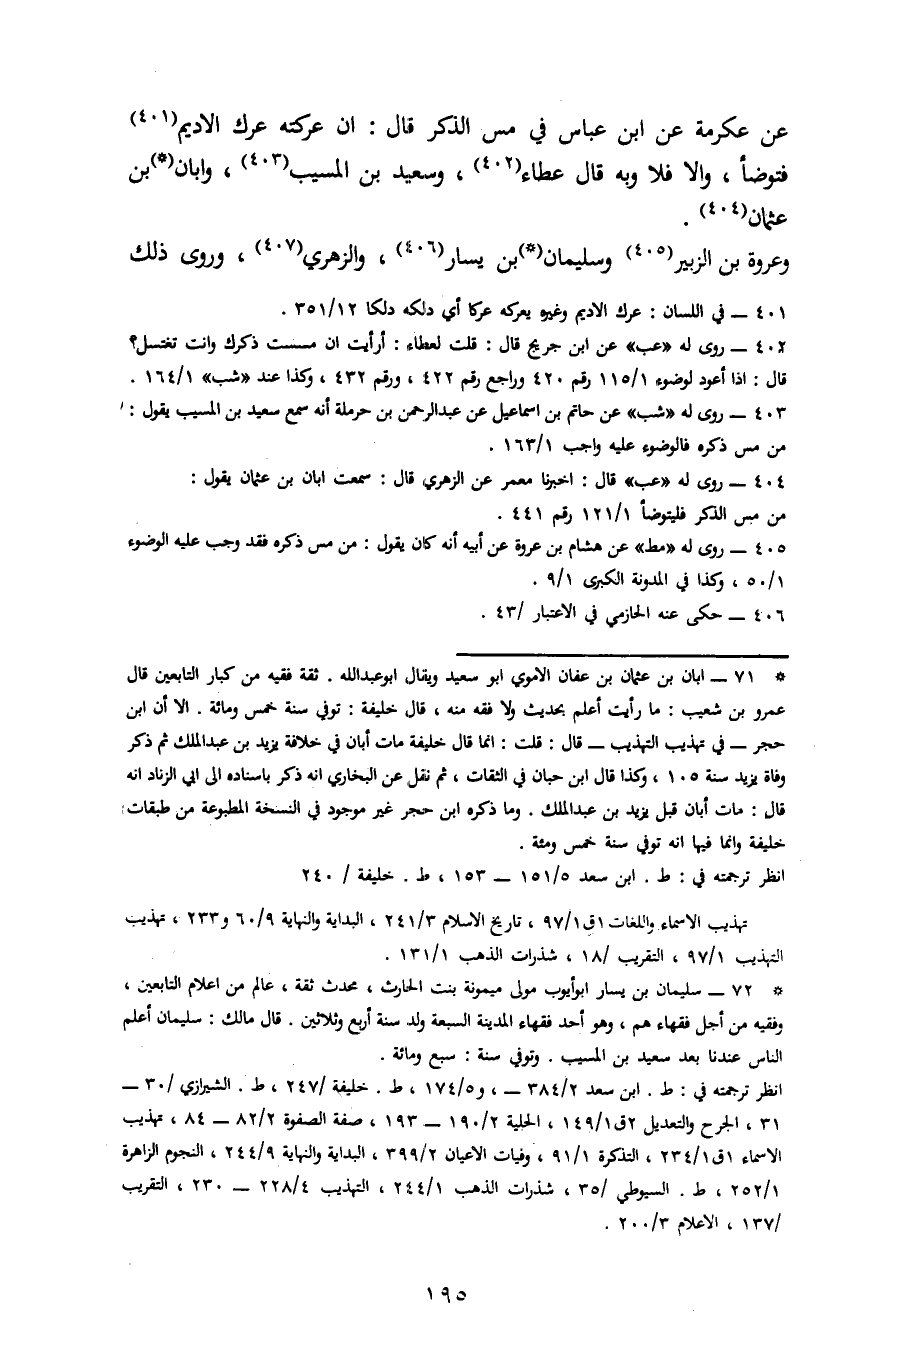 عن عكرمة عن ابن عباس في مس الذكر قال : ان عركته عرك الاديم(٤٠١)
فتوضأ ، والا فلا وبه قال عطاء(٤٠٢) ، وسعيد بن المسيب(٤٠٣) ، وابان(*)بن
عثمان(٤٠٤) .
وعروة بن الزبير(٤٠٥) وسليمان(*)بن يسار(٤٠٦) ، والزهري(٤٠٧) ، وروى ذلك
٤٠١ ــ في اللسان : عرك الاديم وغيره يعركه عركا أي دلكه دلكا ٣٥١/١٢ .
٤٠٢ ــ روى له «عب» عن ابن جريج قال : قلت لعطاء : أرأيت ان مسست ذكرك وانت تغتسل؟
قال : اذا أعود لوضوء ١١٥/١ رقم ٤٢٠ وراجع رقم ٤٢٢ ، ورقم ٤٣٢ ، وكذا عند «شب» ١٦٤/١ .
٤٠٣ ــ روى له «شب» عن حاتم بن اسماعيل عن عبدالرحمن بن حرملة أنه سمع سعيد بن المسيب يقول :
من مس ذكره فالوضوء عليه واجب ١٦٣/١ .
٤٠٤ ــ روى له «عب» قال : اخبرنا معمر عن الزهري قال : سمعت ابان بن عثمان يقول :
من مس الذكر فليتوضأ ١٢١/١ رقم ٤٤١ .
٤٠٥ ــ روى له «مط» عن هشام بن عروة عن أبيه أنه كان يقول : من مس ذكره فقد وجب عليه الوضوء
٥٠/١ ، وكذا في المدونة الكبرى ٩/١ .
٤٠٦ ــ حكى عنه الحازمي في الاعتبار /٤٣ .
* ٧١ ــ ابان بن عثمان بن عفان الاموي ابو سعيد ويقال ابوعبدالله . ثقة فقيه من كبار التابعين قال
عمرو بن شعيب : ما رأيت أعلم بحديث ولا فقه منه ، قال خليفة : توفي سنة خمس ومائة . الا أن ابن
حجر ــ في تهذيب التهذيب ــ قال : قلت : انما قال خليفة مات أبان في خلافة يزيد بن عبدالملك ثم ذكر
وفاة يزيد سنة ١٠٥ ، وكذا قال ابن حبان في الثقات ، ثم نقل عن البخاري انه ذكر باسناده الى ابي الزناد انه
قال : مات أبان قبل يزيد بن عبدالملك . وما ذكره ابن حجر غير موجود في النسخة المطبوعة من طبقات
خليفة وانما فيها انه توفي سنة خمس ومئة .
انظر ترجمته في : ط . ابن سعد ١٥١/٥ ــ ١٥٣ ، ط . خليفة / ٢٤٠
تهذيب الاسماء واللغات ١ق٩٧/١ ، تاريخ الاسلام ٢٤١/٣ ، البداية والنهاية ٦٠/٩ و٢٣٣ ، تهذيب
التهذيب ٩٧/١ ، التقريب /١٨ ، شذرات الذهب ١٣١/١ .
* ٧٢ ــ سليمان بن يسار ابوأيوب مولى ميمونة بنت الحارث ، محدث ثقة ، عالم من اعلام التابعين ،
وفقيه من أجل فقهاء هم ، وهو أحد فقهاء المدينة السبعة ولد سنة أربع وثلاثين . قال مالك : سليمان أعلم
الناس عندنا بعد سعيد بن المسيب . وتوفي سنة : سبع ومائة .
انظر ترجمته في : ط . ابن سعد ٣٨٤/٢ ــ ، و١٧٤/٥ ، ط . خليفة /٢٤٧ ، ط . الشيرازي /٣٠ ــ
٣١ ، الجرح والتعديل ٢ق١٤٩/١ ، الحلية ١٩٠/٢ ــ ١٩٣ ، صفة الصفوة ٨٢/٢ ــ ٨٤ ، تهذيب
الاسماء ١ق٢٣٤/١ ، التذكرة ٩١/١ ، وفيات الاعيان ٣٩٩/٢ ، البداية والنهاية ٢٤٤/٩ ، النجوم الزاهرة
٢٥٢/١ ، ط . السيوطي /٣٥ ، شذرات الذهب ٢٤٤/١ ، التهذيب ٢٢٨/٤ ــ ٢٣٠ ، التقريب
/١٣٧ ، الاعلام ٢٠٠/٣ .
١٩٥